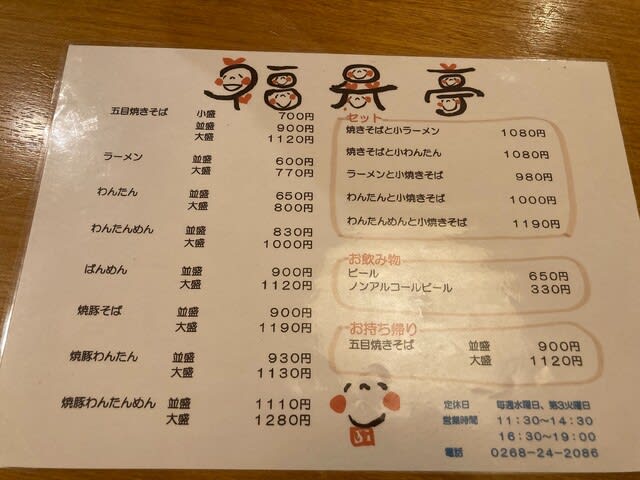 福昇亭
五目焼きそば 小盛 700円
並盛 900円
大盛 1120円
ラーメン 並盛 600円
大盛 770円
わんたん 並盛 650円
大盛 800円
わんたんめん 並盛 830円
大盛 1000円
ばんめん 並盛 900円
大盛 1120円
焼豚そば 並盛 900円
大盛 1190円
焼豚わんたん 並盛 930円
大盛 1130円
焼豚わんたんめん 並盛 1110円
大盛 1280円
セット
焼きそばと小ラーメン 1080円
焼きそばと小わんたん 1080円
ラーメンと小焼きそば 980円
わんたんと小焼きそば 1000円
わんたんめんと小焼きそば 1190円
お飲み物
ビール 650円
ノンアルコールビール 330円
お持ち帰り
五目焼きそば 並盛 900円
大盛 1120円
定休日 毎週水曜日、第3火曜日
営業時間 11:30〜14:30
16:30〜19:00
電話 0268-24-2086